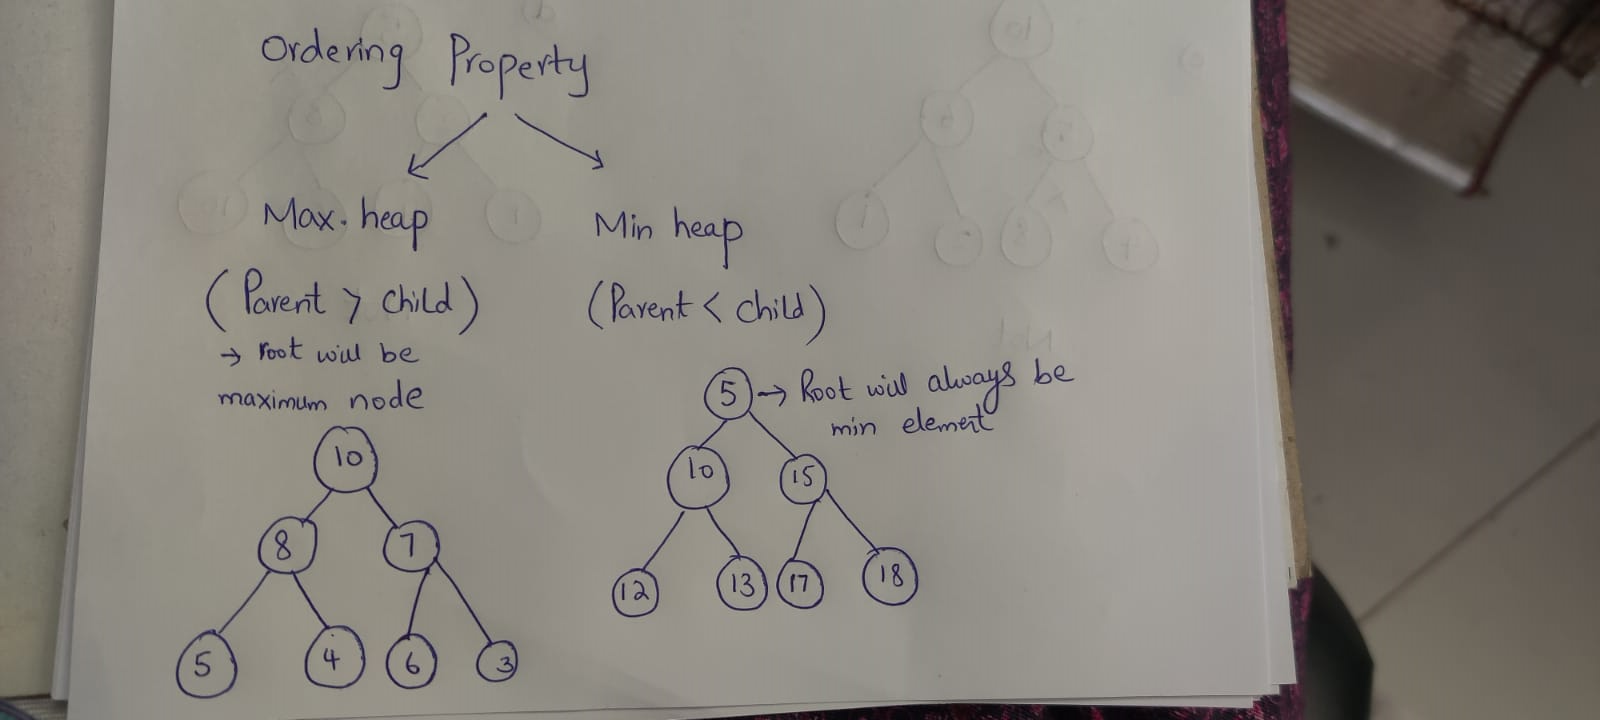 Ordering Property
Max. heap
(Parent > child)
→ root will be
maximum node
10
8 7
5 4 6 3
Min heap
(Parent < child)
5 → Root will always be
min element
10 15
12 13 17 18